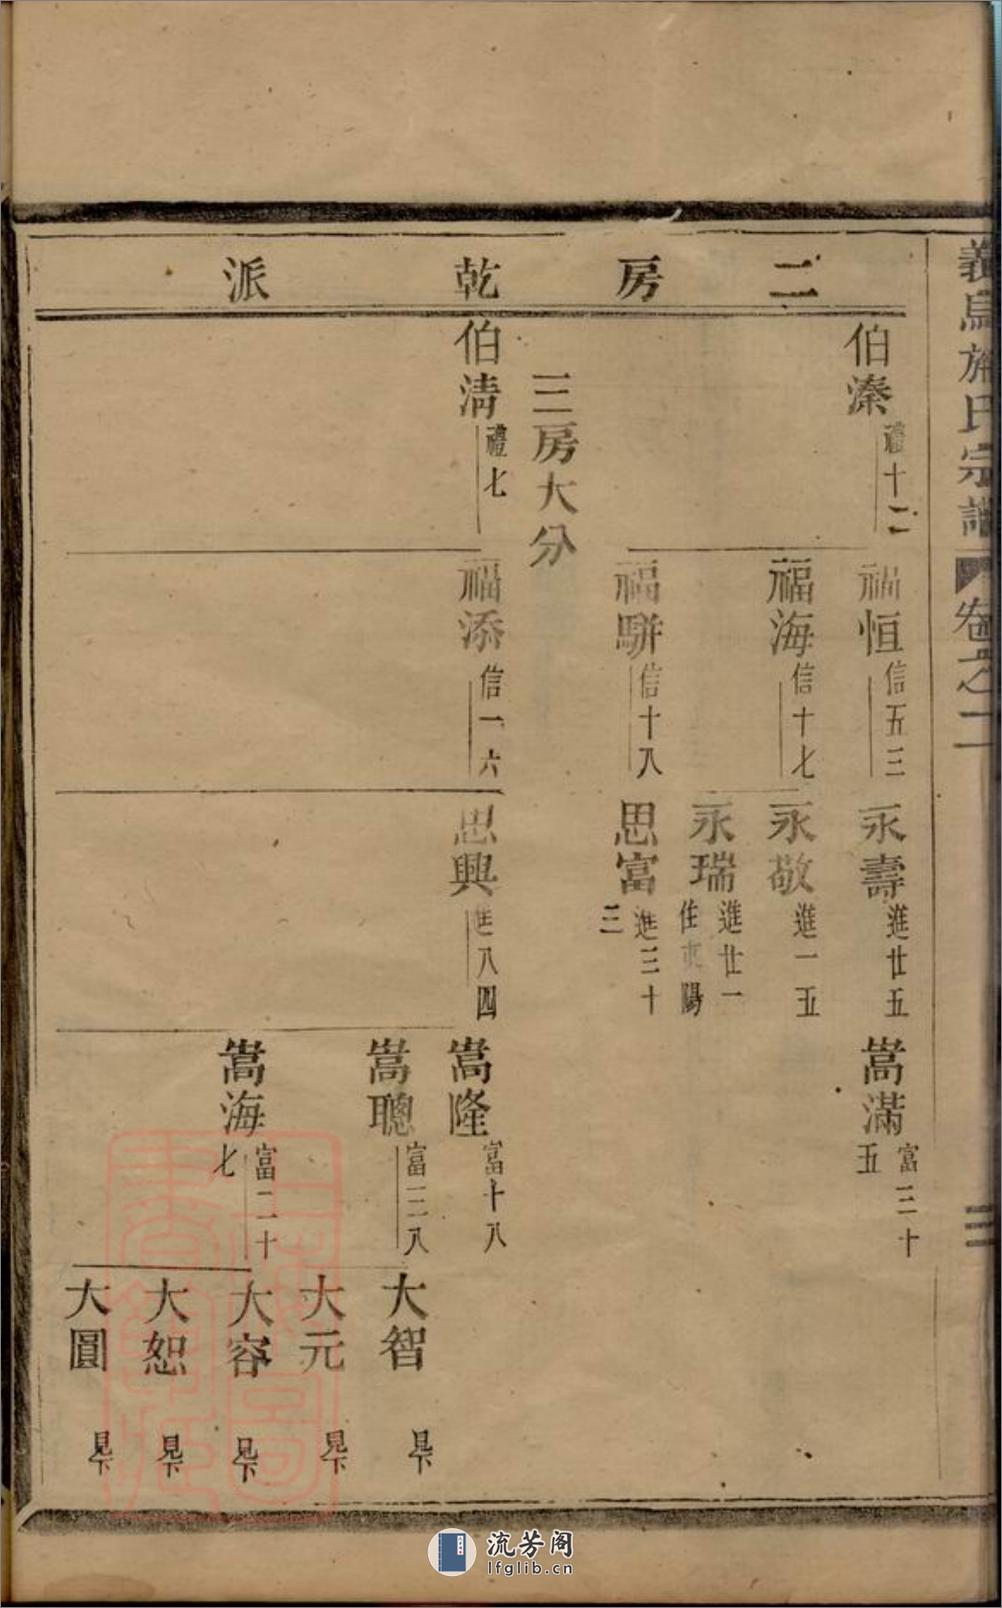 義烏施氏宗譜 卷之二 三
二房乾派
伯溱 禮十二
福恒 信五三
福海 信十七
福駢 信十八
永壽 進廿五
永敬 進一五
永瑞 進廿一 住東陽
思富 進三十三
嵩滿 富三十五
三房大分
伯淸 禮七
福添 信一六
思興 進八四
嵩隆 富十八
嵩聰 富二八
嵩海 富二十七
大智 見下
大元 見下
大容 見下
大恕 見下
大圓 見下
流芳阁
lfglib.cn